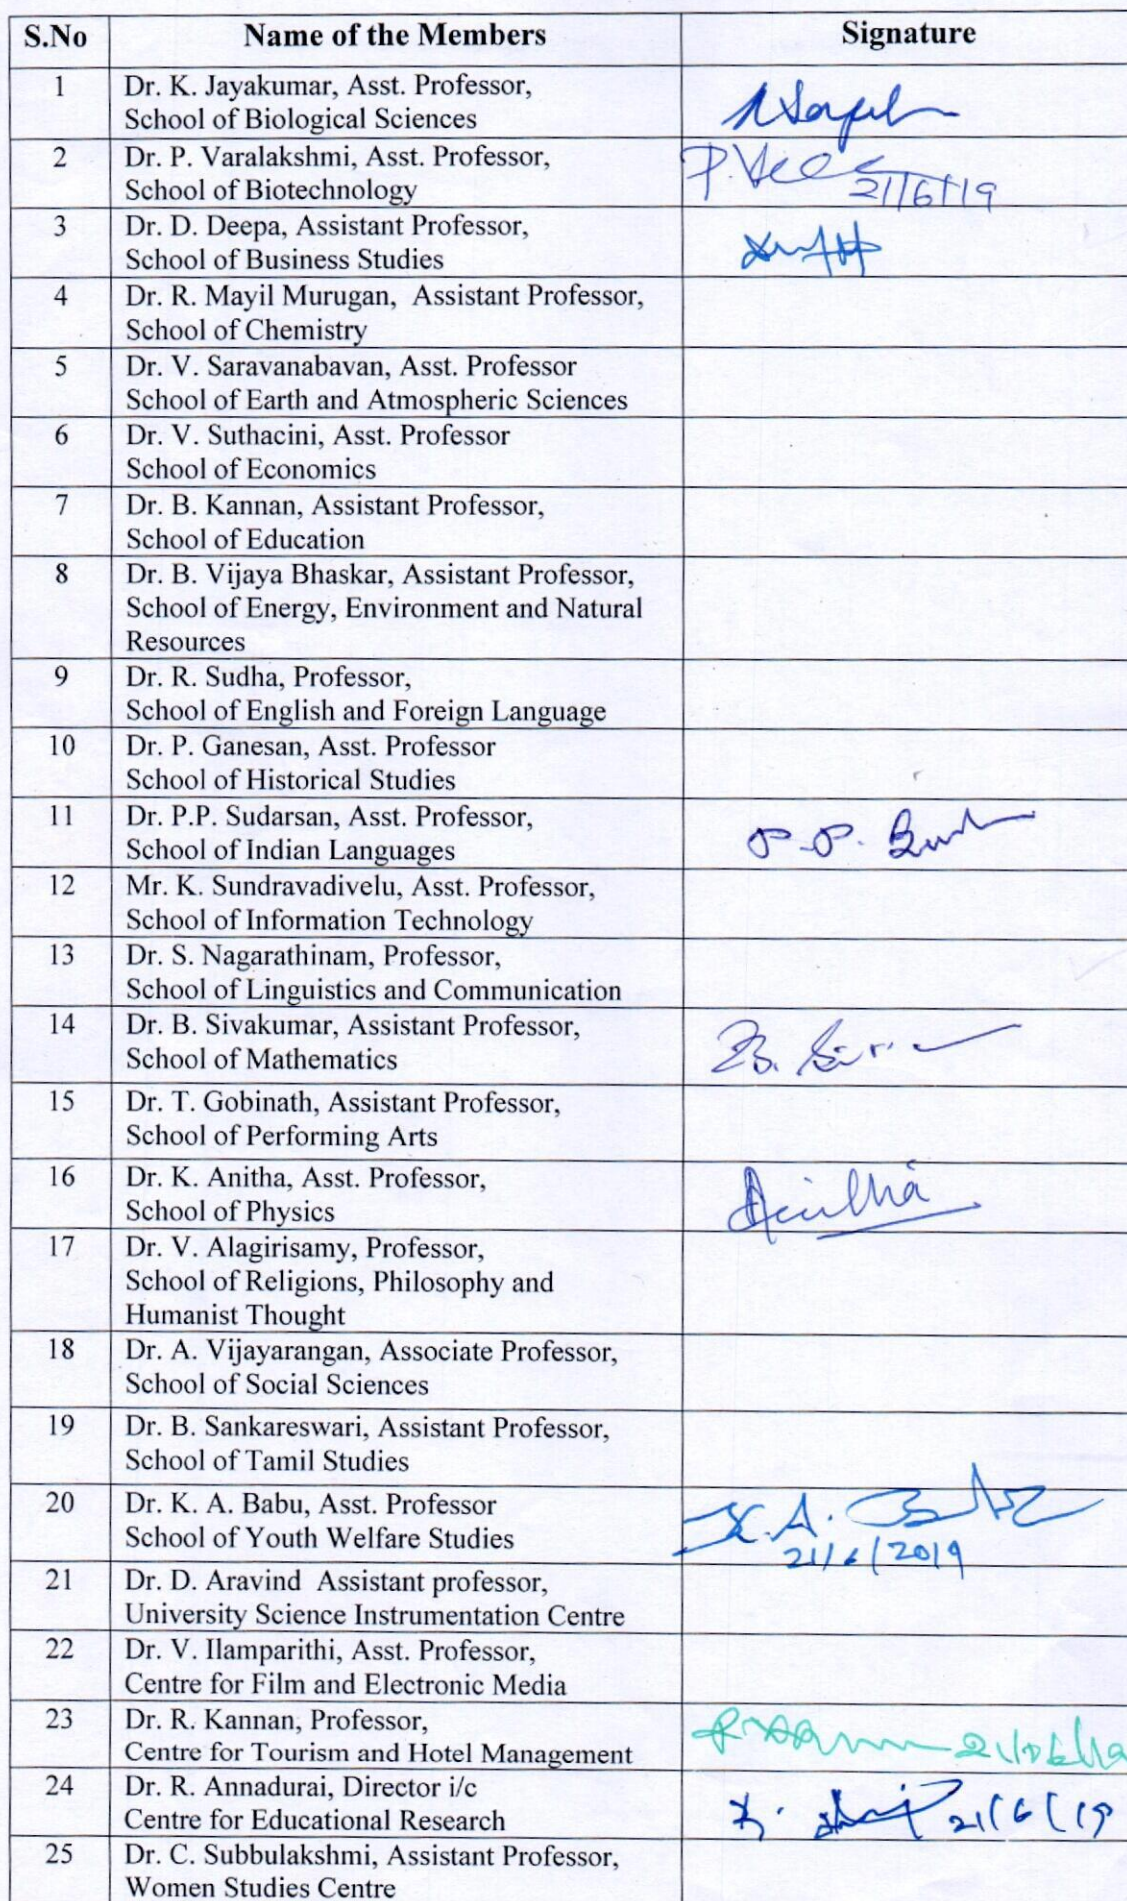 S.No Name of the Members Signature
1 Dr. K. Jayakumar, Asst. Professor,
School of Biological Sciences
2 Dr. P. Varalakshmi, Asst. Professor,
School of Biotechnology
21/6/19
3 Dr. D. Deepa, Assistant Professor,
School of Business Studies
4 Dr. R. Mayil Murugan, Assistant Professor,
School of Chemistry
5 Dr. V. Saravanabavan, Asst. Professor
School of Earth and Atmospheric Sciences
6 Dr. V. Suthacini, Asst. Professor
School of Economics
7 Dr. B. Kannan, Assistant Professor,
School of Education
8 Dr. B. Vijaya Bhaskar, Assistant Professor,
School of Energy, Environment and Natural
Resources
9 Dr. R. Sudha, Professor,
School of English and Foreign Language
10 Dr. P. Ganesan, Asst. Professor
School of Historical Studies
11 Dr. P.P. Sudarsan, Asst. Professor,
School of Indian Languages
12 Mr. K. Sundravadivelu, Asst. Professor,
School of Information Technology
13 Dr. S. Nagarathinam, Professor,
School of Linguistics and Communication
14 Dr. B. Sivakumar, Assistant Professor,
School of Mathematics
15 Dr. T. Gobinath, Assistant Professor,
School of Performing Arts
16 Dr. K. Anitha, Asst. Professor,
School of Physics
Anitha
17 Dr. V. Alagirisamy, Professor,
School of Religions, Philosophy and
Humanist Thought
18 Dr. A. Vijayarangan, Associate Professor,
School of Social Sciences
19 Dr. B. Sankareswari, Assistant Professor,
School of Tamil Studies
20 Dr. K. A. Babu, Asst. Professor K.A.
School of Youth Welfare Studies 21/6/2019
21 Dr. D. Aravind Assistant professor,
University Science Instrumentation Centre
22 Dr. V. Ilamparithi, Asst. Professor,
Centre for Film and Electronic Media
23 Dr. R. Kannan, Professor,
Centre for Tourism and Hotel Management
24 Dr. R. Annadurai, Director i/c
Centre for Educational Research 21/6/19
25 Dr. C. Subbulakshmi, Assistant Professor,
Women Studies Centre